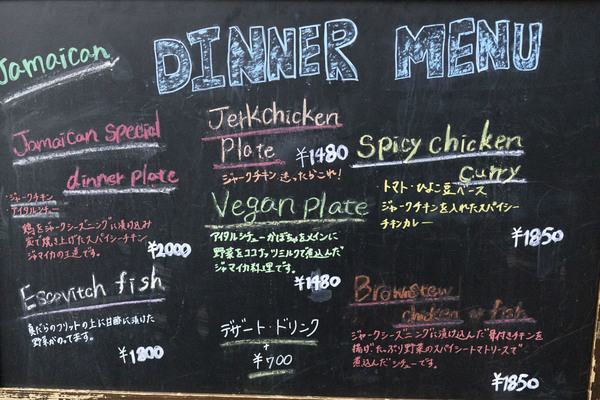 Jamaican
DINNER MENU
Jamaican special
dinner plate
・ジャークチキン
アイタルシチュー
鶏をジャークシーズニングに漬け込み
窯で焼き上げたスパイシーチキン
ジャマイカの王道です。
¥2000
Escovitch fish
真だらのフリットの上に甘酢に漬けた
野菜がのってます。
¥1800
Jerkchicken
Plate ¥1480
ジャークチキン 迷ったらこれ!
Vegan plate
アイタルシチューかぼちゃをメインに
野菜をココナッツミルクで煮込んだ
ジャマイカ料理です。
¥1480
デザート・ドリンク
+
¥700
Spicy chicken
curry
・トマト・ひよこ豆ベース
ジャークチキンを入れたスパイシー
チキンカレー
¥1850
Brownstew
chicken or fish
ジャークシーズニングに漬け込んだ骨付きチキンを
揚げ、たっぷり野菜のスパイシートマトソースで
煮込んだシチューです。
¥1850